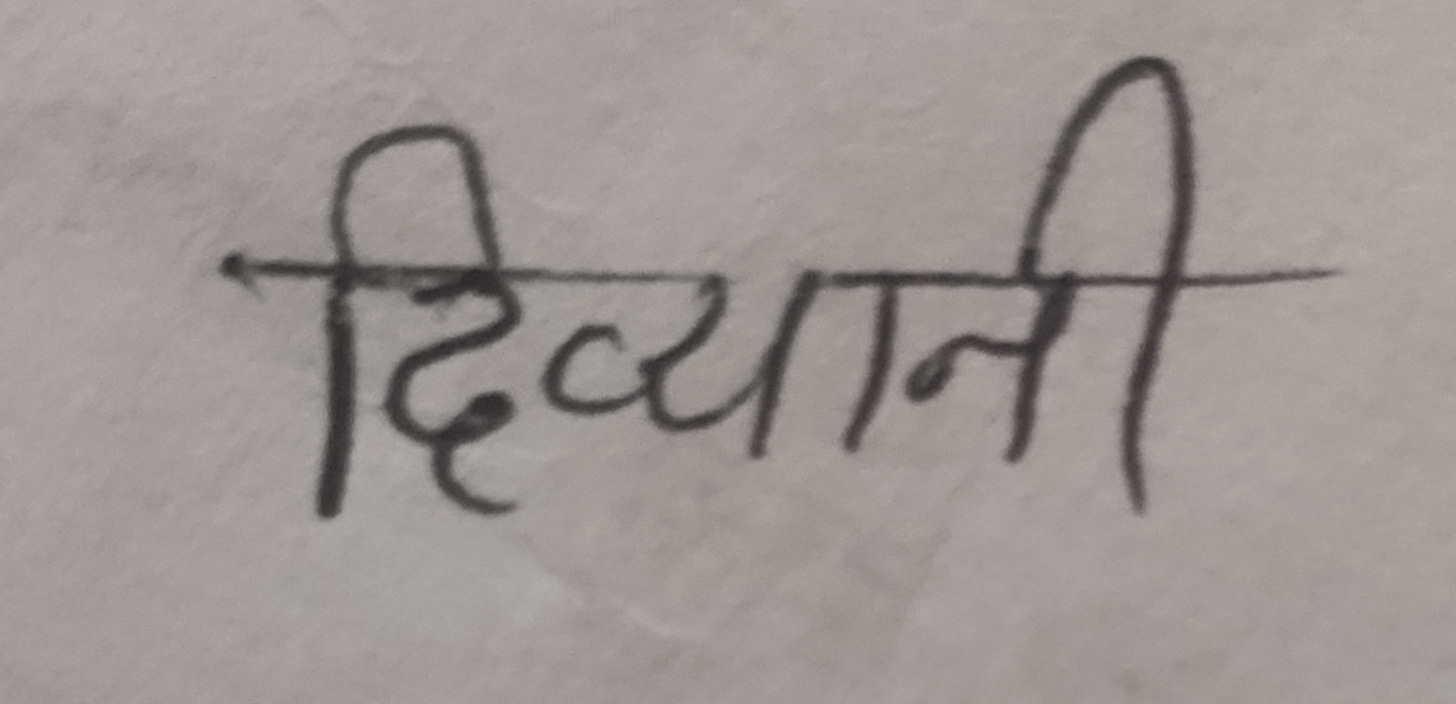 दिव्यानी